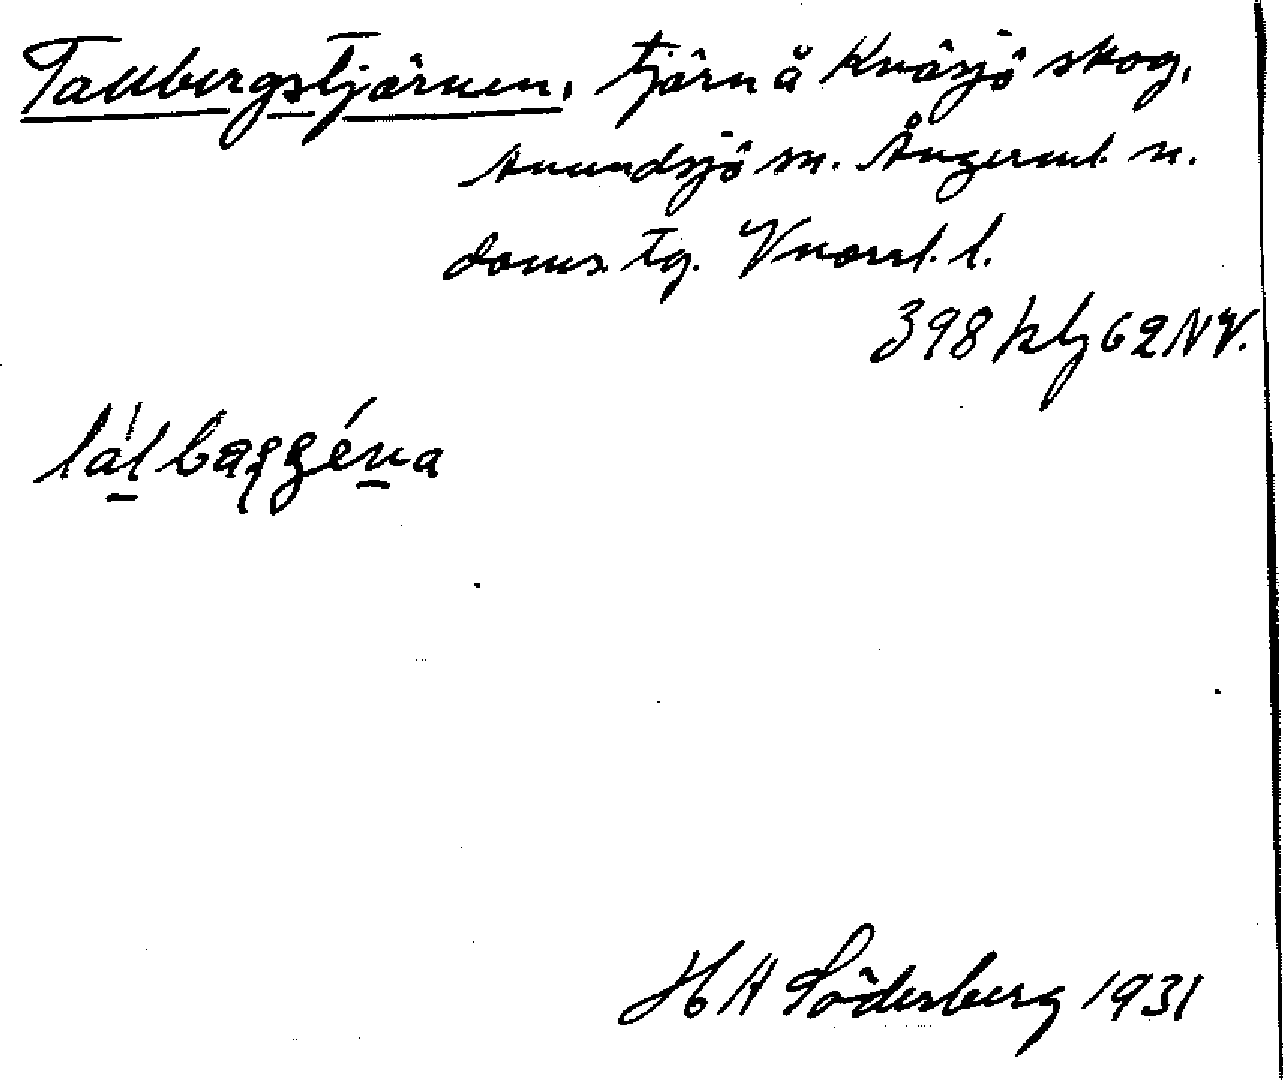 Tallbergstjärnen, tjärn å Kväsjö skog,
Anundsjö sn. Ångerml. n.
doms. tg. Vnorrl. l.
398 klj 62 NV.
H A Söderberg 1931